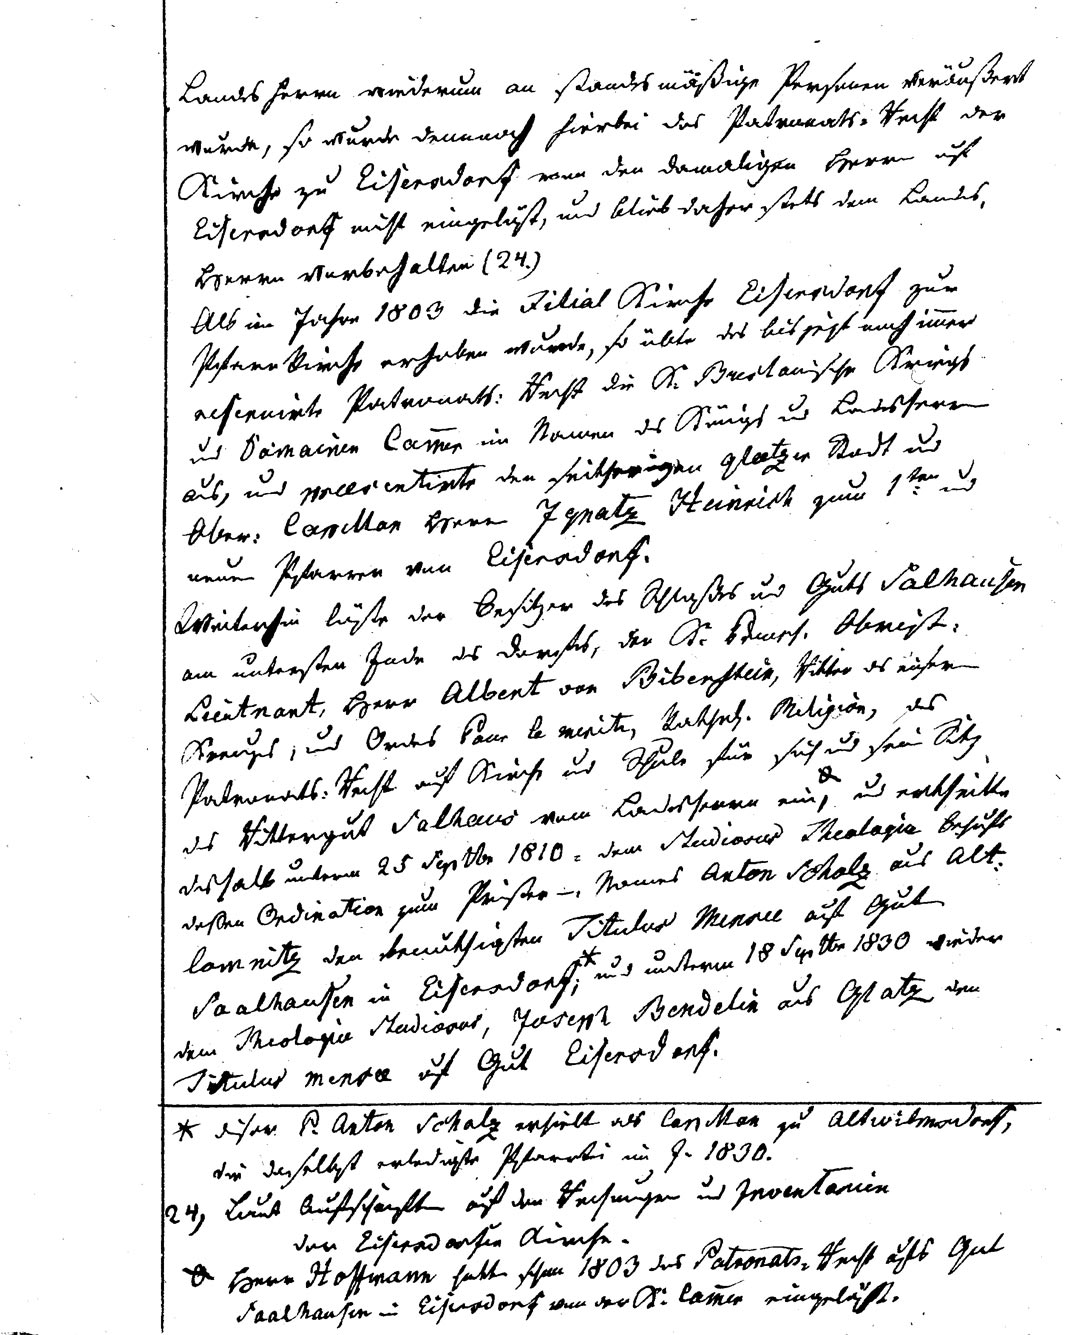 Landes Herrn wiederum an standesmäßige Personen veräußert
wurde, so wurde dennoch hierbei das Patronats-Recht der
Kirche zu Eisersdorf von den damaligen Herrn auf
Eisersdorf nicht eingelößt, und blieb daher stets dem Landes,
Herrn vorbehalten (24.)
Als im Jahre 1803 die Filial Kirche Eisersdorf zur
Pfarr Kirche erhoben wurde, so übte das bis jezt noch immer
reservirte Patronats: Recht die K. Breslauische Kriegs
und Domainen Cammer im Namen des Königs und Landesherrn
aus, und praesentirte den seitherigen glatzer Stadt und
Ober: Capellan Herrn Ignatz Heinrich zum 1ten und
neuen Pfarrer von Eisersdorf.
Weiterhin lößte der Besitzer des Schloßes und Guts Salhausen
am untersten Ende des Dorfes, der K. Preus. Obrist:
Lieutnant, Herr Albert von Bibenstein, Ritter des eisern
Kreuzes, und Ordens Pour le merite, kathol. Religion, das
Patronats: Recht auf Kirche und Schule für sich und sein Sitz
des Rittergut Salhaus vom Landesherrn ein, und ertheilte
deshalb unterm 25 Septbr 1810 = dem Studiosus Theologia behufs
deßen Ordination zum Priester –, Namens Anton Scholz aus Alt:
lomnitz den benöthigten Titulus Mensae auf Gut
Saalhausen in Eisersdorf;* und unterm 18 Septbr 1830 wieder
dem Theologia Studiosus, Joseph Bendelin aus Glatz den
Titulus mensae auf Gut Eisersdorf.
* dieser P. Anton Scholz erhielt als Capellan zu Altwilmsdorf,
die daselbst erledigte Pfarrtei im J. 1830.
24, Laut Aufschriften auf den Rechnungen und Inventarien
der Eisersdorfer Kirche.
Herr Hoffmann hatte schon 1803 das Patronats-Recht aufs Gut
Saalhausen in Eisersdorf von der K. Cammer eingelößt.